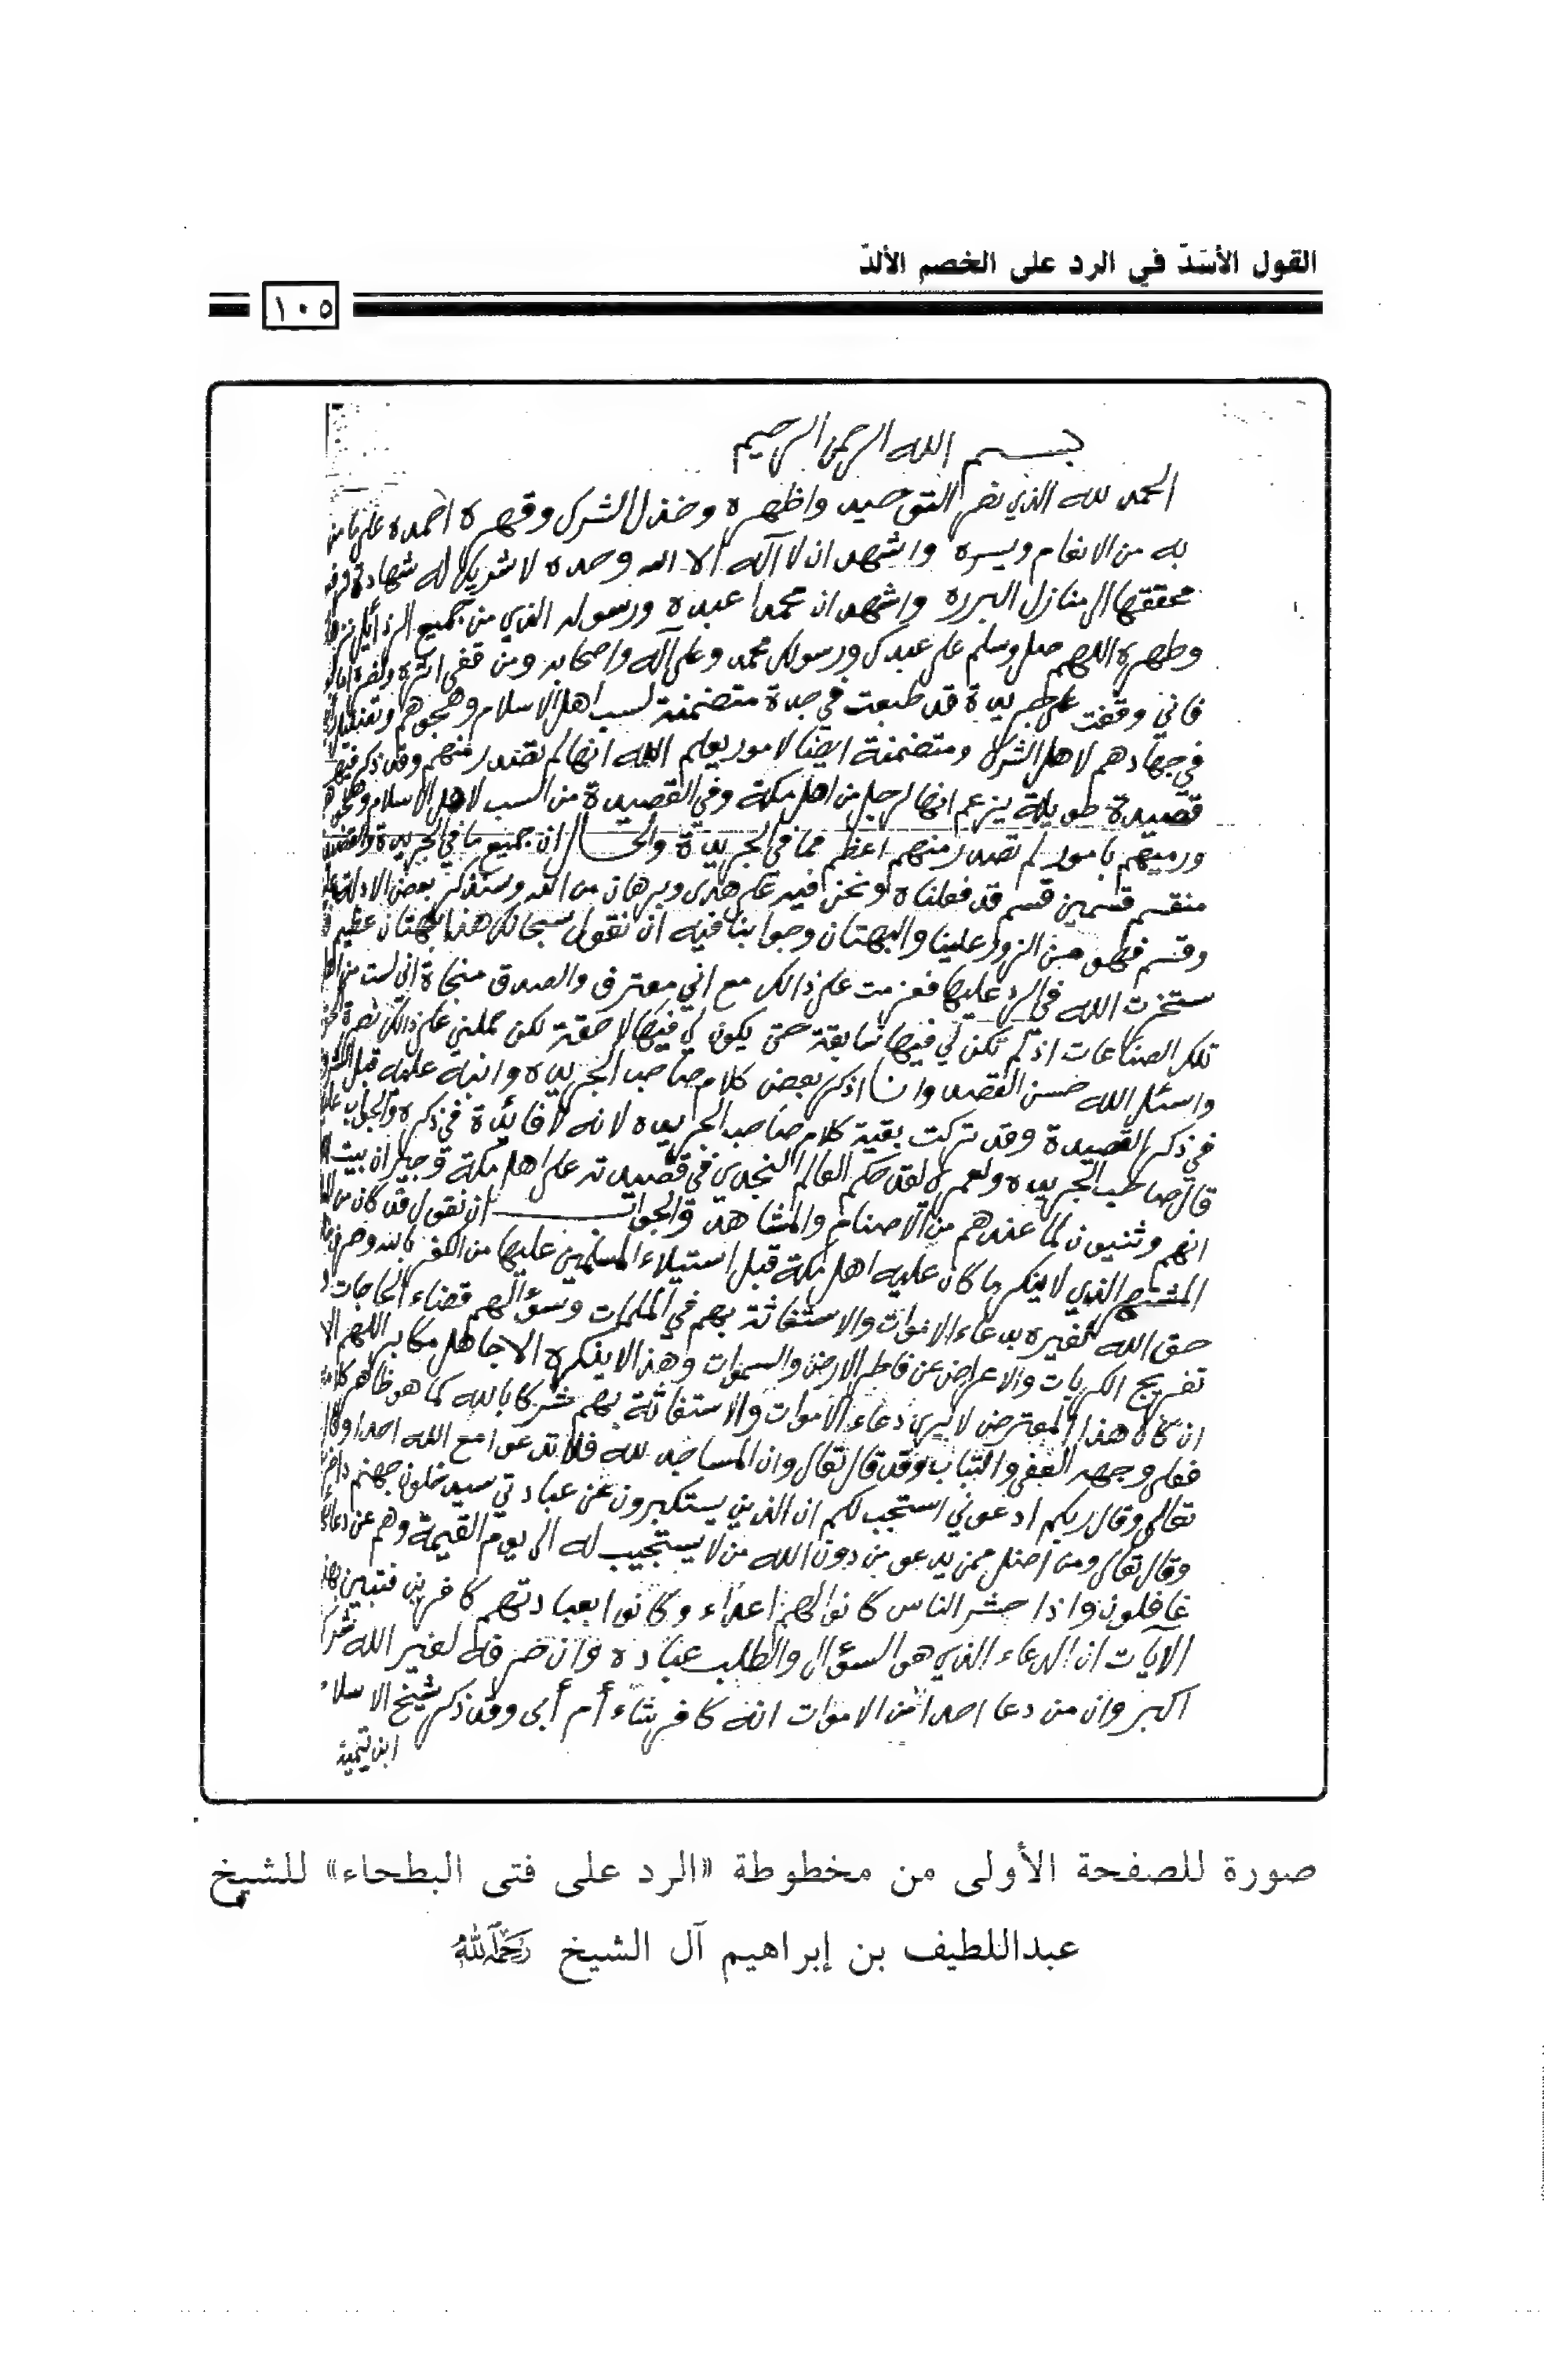 القول الأسَدّ في الرد على الخصم الألدّ
١٠٥
بسم الله الرحمن الرحيم
الحمد لله الذي نصر التوحيد واظهره وخذل الشرك وقهره احمده على ما من
به من الانعام ويسره واشهد ان لا آله الا الله وحده لا شريك له شهادة
محققها الى منازل البرره واشهد ان محمدا عبده ورسوله الذي من جميع الرذايل
وطهره اللهم صل وسلم على عبدك ورسولك محمد وعلى آله واصحابه ومن قفى اثره ونصره اما
فاني وقفت على جريدة قد طبعت في جدة متضمنة لسب اهل الاسلام وهجوهم
في جهادهم لاهل الشرك ومتضمنة ايضا لامور يعلم الله انها لم تصدر منهم وقد ذكر فيها
قصيدة طويلة يزعم انها لرجل من اهل مكة وفي القصيدة من السب لاهل الاسلام
ورميهم بامور لم تصدر منهم اعظم مما في الجريدة والحال ان جميع ما في الجريدة
منقسم قسمين قسم قد فعلناه ونحن فيه على هدى وبرهان من الله وسنذكر بعض الادلة
وقسم فهو من الزور علينا والبهتان وجوابنا فيه ان نقول سبحانك هذا بهتان عظيم
ستخرت الله في الرد عليها فعزمت على ذالك مع اني معترف والصدق منجاة اني لست من
تلك الصناعات اذ لم تكن لي فيها سابقة حتى يكون لي فيها لاحقة لكن حملني على ذالك نصرة
واسئل الله حسن القصد وانا اذكر بعض كلام صاحب الجريده وانبه عليه قبل
في ذكر القصيدة وقد تركت بقية كلام صاحب الجريده لانه لا فائدة في ذكره والجواب
قال صاحب الجريده ولعمري لقد حكم العالم النجدي في قصيدته على اهل مكة وجيران بيت
انهم وثنيون لما عندهم من الاصنام والمشاهد والجواب ان نقول قد كان من
الذي لا ينكر ما كان عليه اهل مكة قبل استيلاء المسلمين عليها من الكفر بالله وصرف
حق الله لغيره بدعاء الاموات والاستغاثة بهم في الملمات وسؤالهم قضاء الحاجات
تفريج الكربات والاعراض عن فاطر الارض والسموات وهذا لا ينكره الا جاهل مكابر اللهم الا
ان كان هذا المعترض لا يرى دعاء الاموات والاستغاثة بهم شركا بالله كما هو ظاهر
فعلى وجهه العفى والتباب وقد قال تعالى وان المساجد لله فلا تدعوا مع الله احدا
تعالى وقال ربكم ادعوني استجب لكم ان الذين يستكبرون عن عبادتي سيدخلون جهنم
وقال تعالى ومن اضل ممن يدعو من دون الله من لا يستجيب له الى يوم القيمة وهم عن
غافلون واذا حشر الناس كانوا لهم اعداء وكانوا بعبادتهم كافرين فتبين
الآيات ان الدعاء الذي هو السؤال والطلب عباده وان صرفه لغير الله شرك
اكبر وان من دعا احدا من الاموات انه كافر شاء أم أبى وقد ذكر شيخ الاسلام
ابن تيمية
صورة للصفحة الأولى من مخطوطة «الرد على فتى البطحاء» للشيخ
عبداللطيف بن إبراهيم آل الشيخ رحمه الله